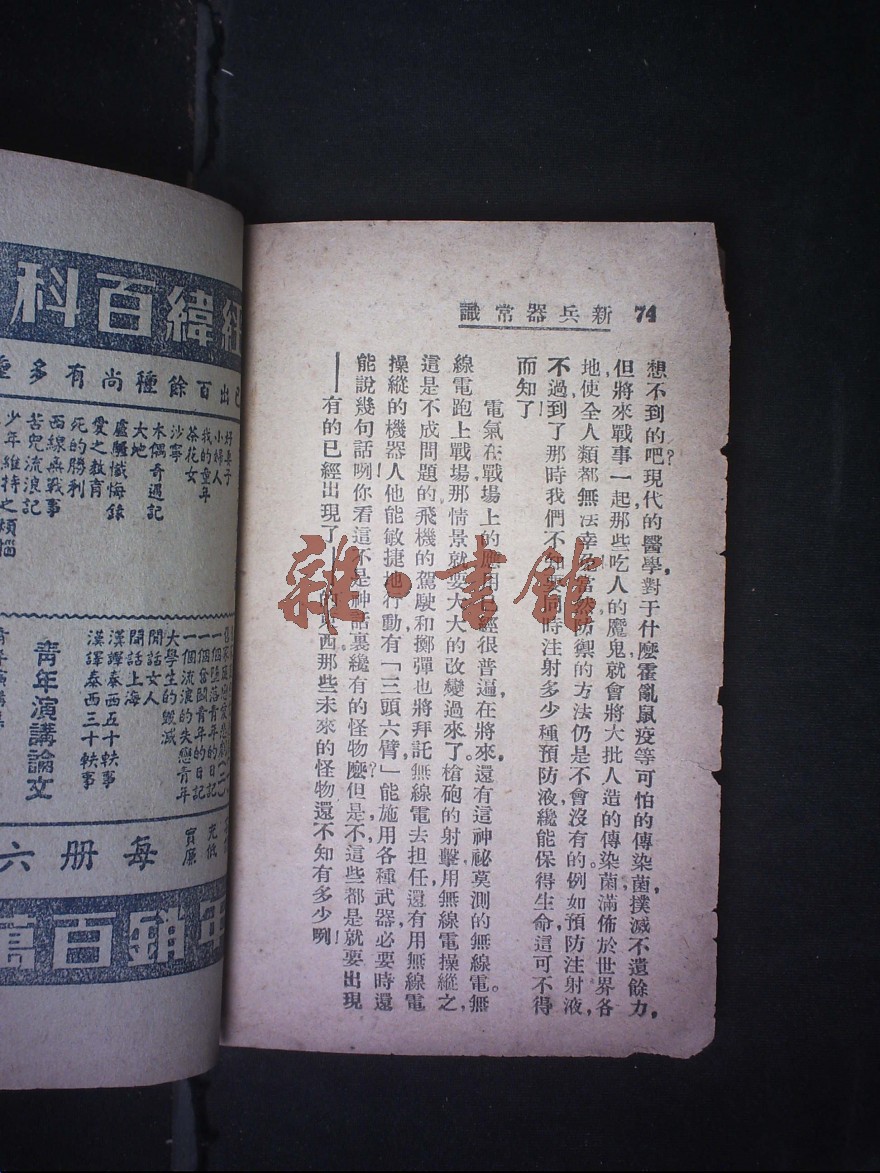 74 新兵器常識
想不到的吧?現代的醫學,對于什麼霍亂鼠疫等可怕的傳染菌,撲滅不遺餘力,
但將來戰事一起,那些吃人的魔鬼,就會將大批人造的傳染菌,滿佈於世界各
地,使全人類都無法幸免!當然防禦的方法仍是不會沒有的。例如預防注射液,
不過到了那時,我們不知要同時注射多少種預防液,纔能保得生命,這可不得
而知了!
電氣在戰場上的應用已經很普遍,在將來,還有這神祕莫測的無線電。無
線電跑上戰場,那情景就要大大的改變過來了。槍砲的射擊,用無線電操縱之,
這是不成問題的,飛機的駕駛和擲彈,也將拜託無線電去担任,還有用無線電
操縱的機器人,他能敏捷地行動,有「三頭六臂」,能施用各種武器,必要時還
能說幾句話咧!你看這不是神話裏纔有的怪物麼?但是,不,這些都是就要出現
——有的已經出現了——的東西,那些未來的怪物,還不知有多少咧!
緯百科
已出百餘種尚有多
好妻子
小婦人
我的童年
茶花女
沙寧
木偶奇遇記
大地
盧騷懺悔錄
愛之教育
死的勝利
西線無戰事
苦兒流浪記
少年維特之煩惱
一個墮落青年的日記
一個奮鬥青年的日記
一個流浪的失戀青年
大學生的毀滅
閒話女人
閒話上海
漢譯泰西五十軼事
漢譯泰西三十軼事
青年演講論文
每冊六
銷百萬
雜·書館